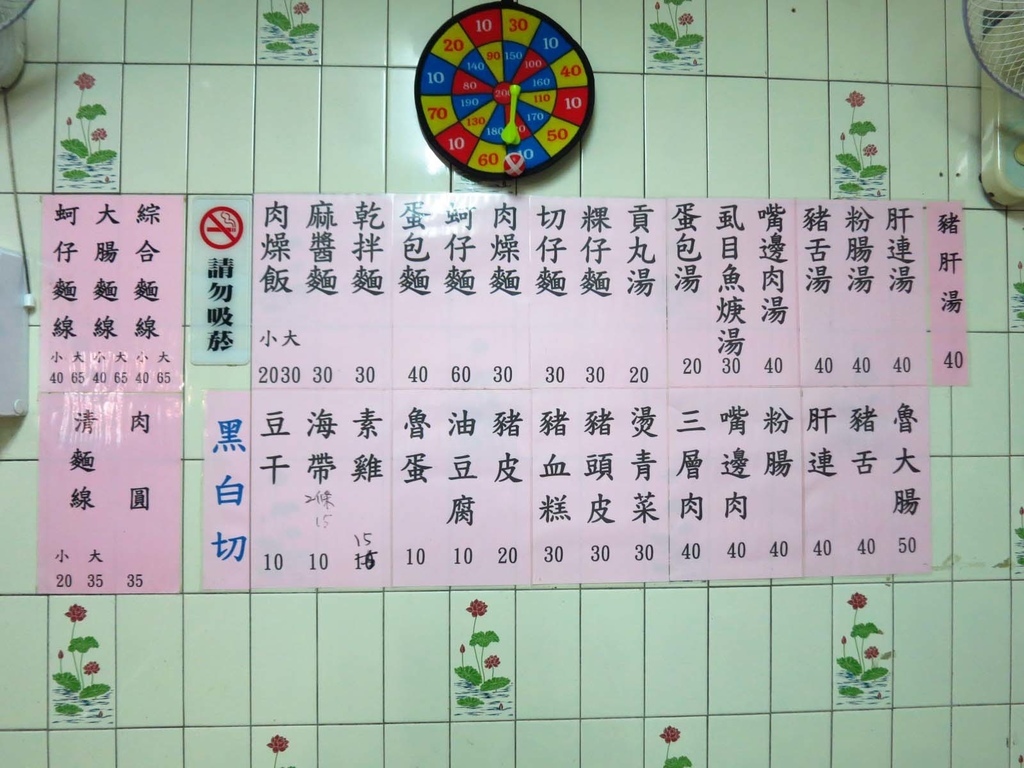 蚵仔麵線 小40 大65
大腸麵線 小40 大65
綜合麵線 小40 大65
請勿吸菸
肉燥飯 小20 大30
麻醬麵 30
乾拌麵 30
蛋包麵 40
蚵仔麵 60
肉燥麵 30
切仔麵 30
粿仔麵 30
貢丸湯 20
蛋包湯 20
虱目魚焿湯 30
嘴邊肉湯 40
豬舌湯 40
粉腸湯 40
肝連湯 40
豬肝湯 40
清麵線 小20 大35
肉圓 35
黑白切
豆干 10
海帶 2條15 10
素雞 15
魯蛋 10
油豆腐 10
豬皮 20
豬血糕 30
豬頭皮 30
燙青菜 30
三層肉 40
嘴邊肉 40
粉腸 40
肝連 40
豬舌 40
魯大腸 50
10 30 10 40 10 50 10 60 10 70 10 20
90 150 100 160 110 170 180 130 190 80 140
200